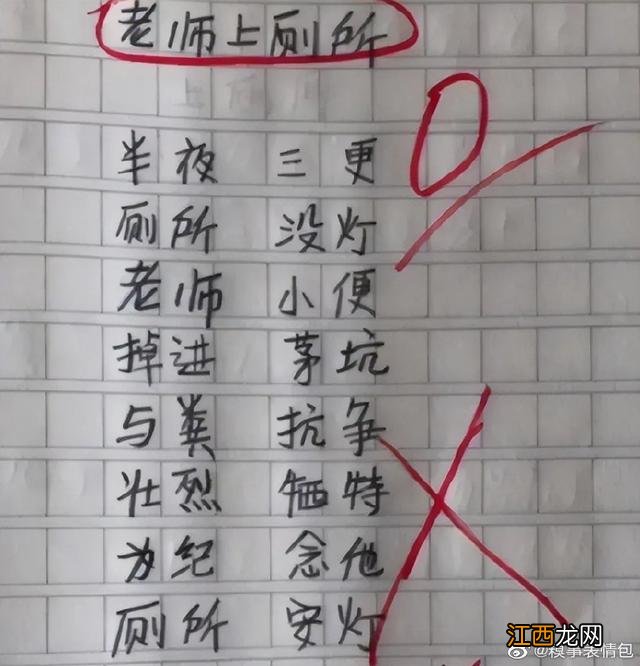 老师上厕所
0
半夜 三更
厕所 没灯
老师 小便
掉进 茅坑
与粪 抗争
壮烈 牺特
为纪 念他
厕所 安灯
江西龙网
@糗事表情包